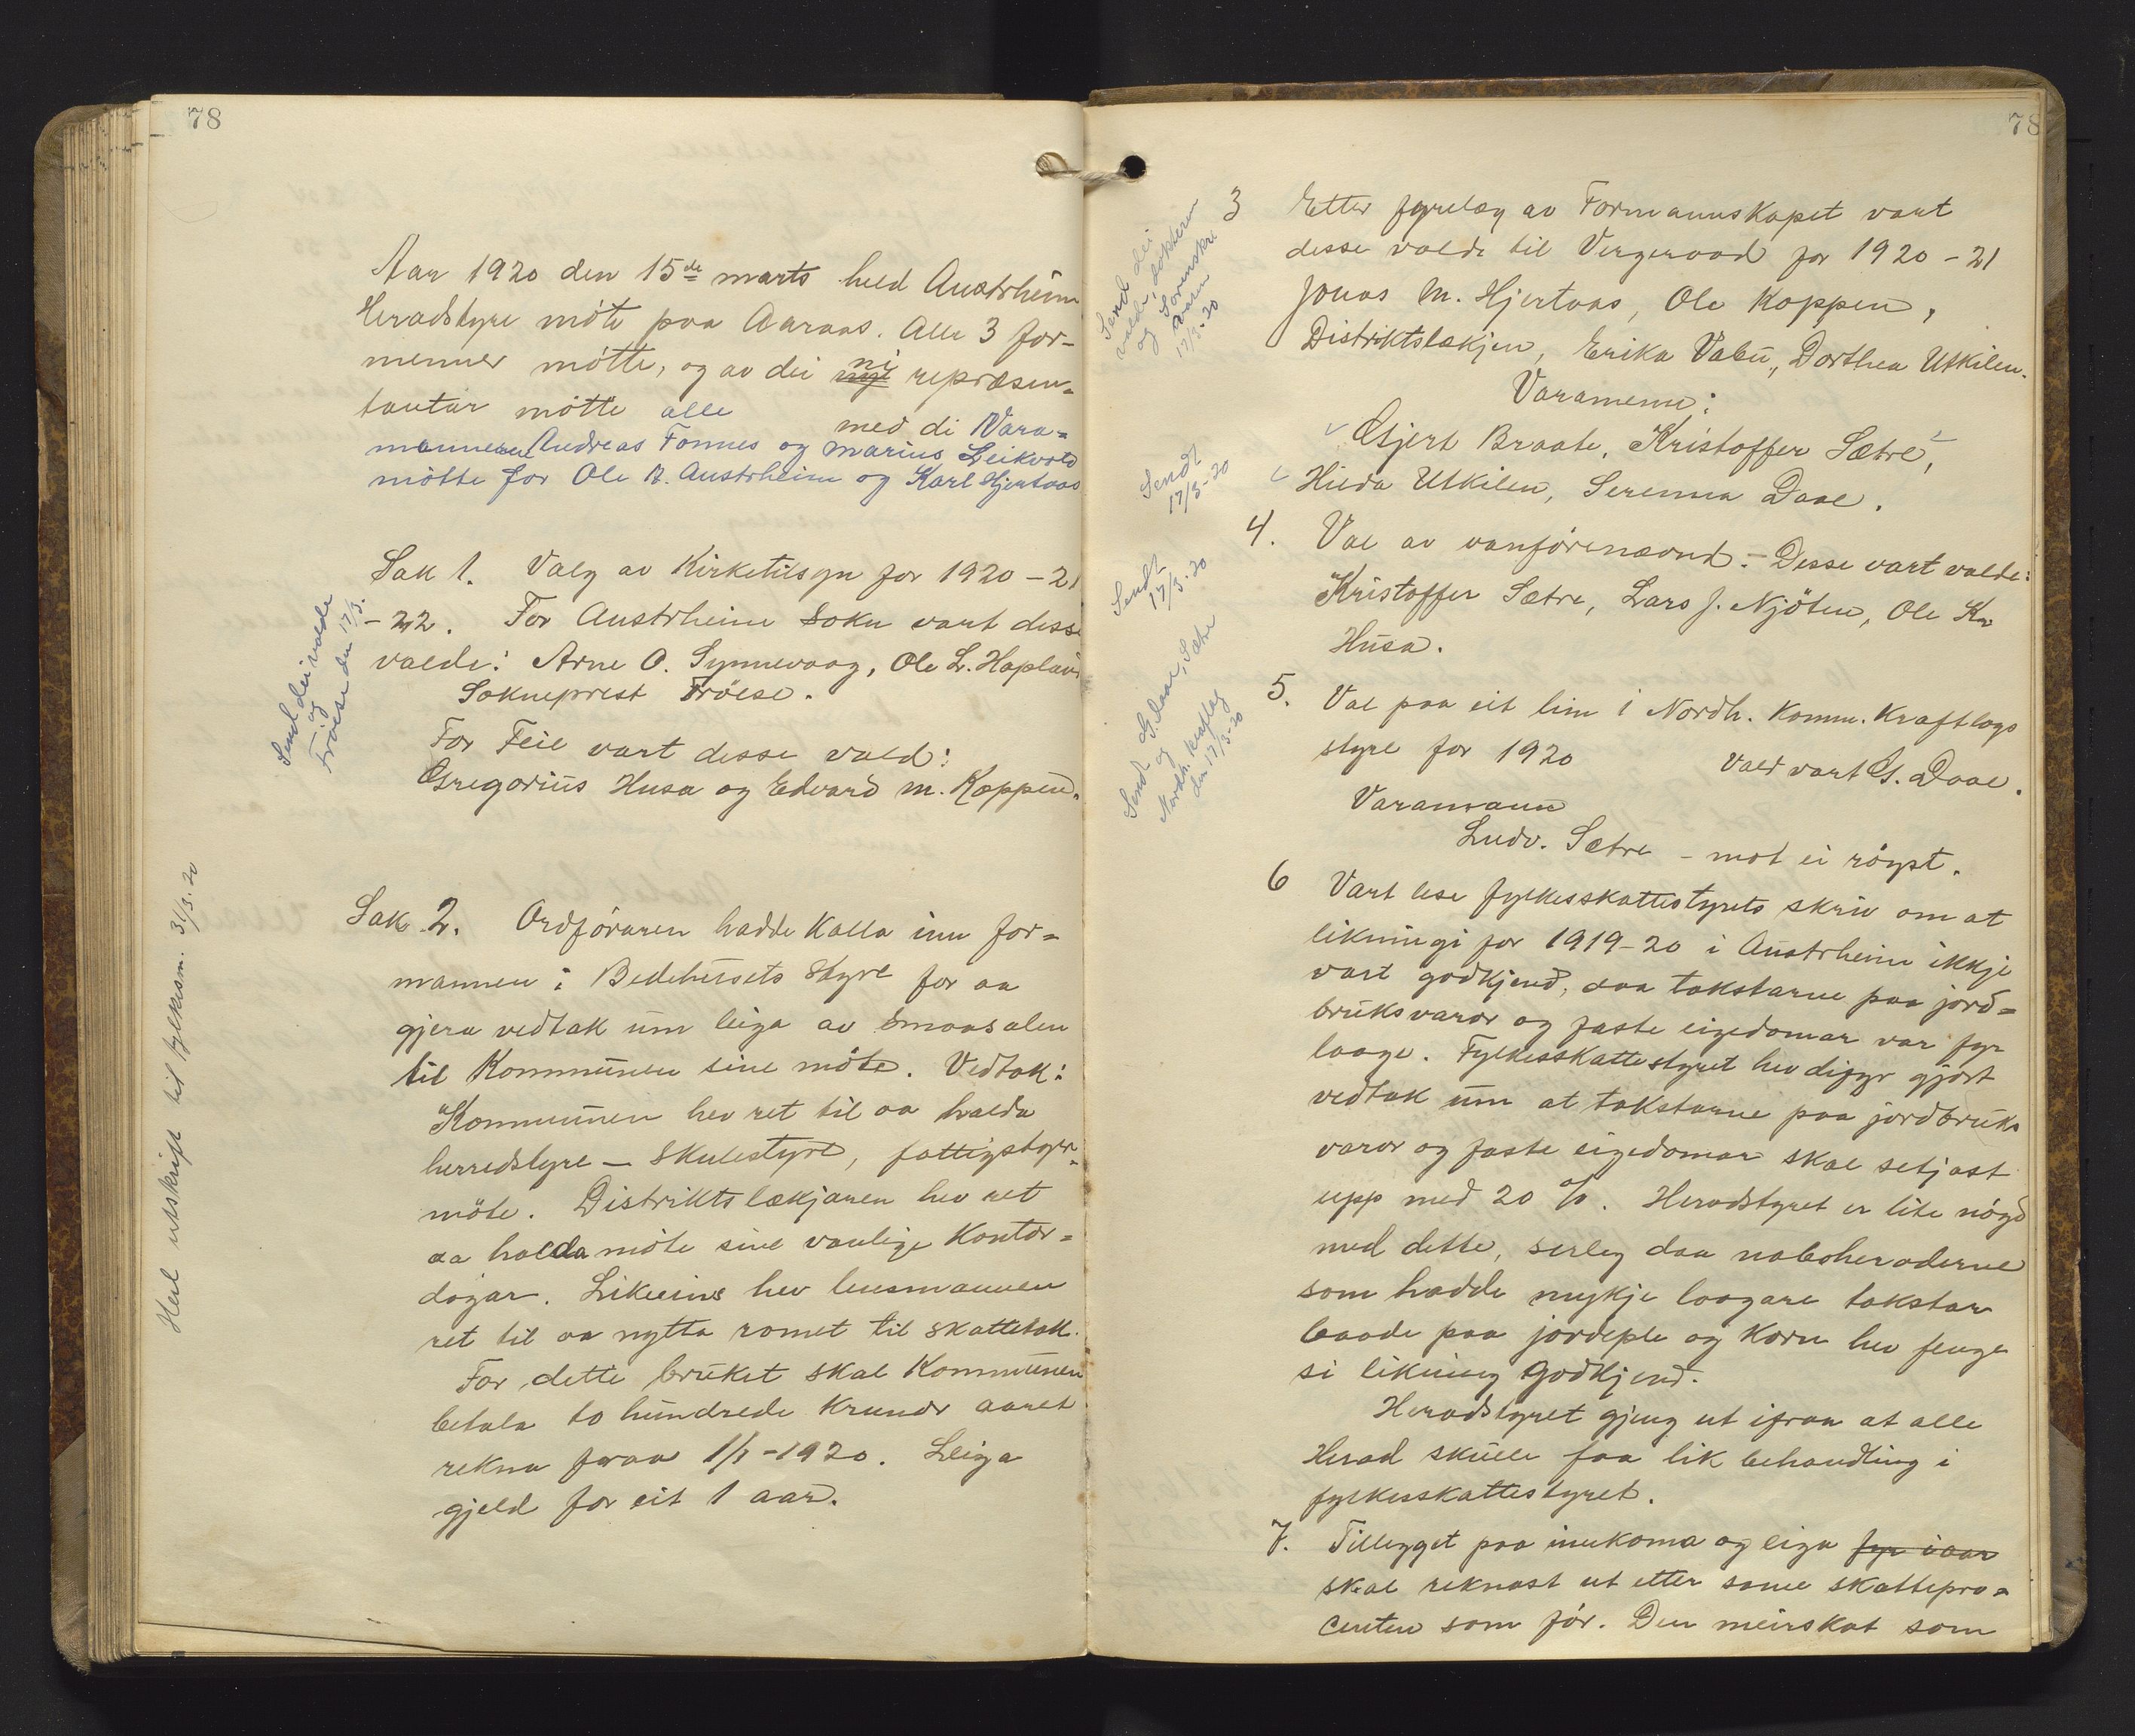 78
Aar 1920 den 15de marts held Austrheim
Heradstyre möte paa Aaraas. Alle 3 for-
menner mötte, og av dei nye ni repræsen-
tantar mötte alle med di Vara-
mannene Andreas Fonnes og Marius Leikvold
mötte for Ole A. Austrheim og Karl Hjertaas
Sak 1. Valg av Kirketilsyn for 1920-21
-22. For Austrheim Sokn vart disse
valde: Arne O. Synnevaag, Ole L. Hopland
Sokneprest Fröese.
For Feie vart desse vald:
Gregorius Husa og Edvard M. Koppen.
Send dei valde
og
Fröese den 17/3.
Sak 2. Ordföraren hadde Kalla inn for-
mannen i Bedehusets Styre for aa
gjera vedtak um leiga av Smaasalen
til Kommunen sine möte. Vedtak:
Kommunen hev ret til aa halda
herredstyre- Skulestyre, fattigstyre-
möte. Distriktslækjaren hev ret
aa halda möte sine vanlige Kontor-
dagar. Likeeins hev lensmannen
ret til aa nytta romet til skattetak.
For dette bruket skal Kommunen
betala to hundrede Krunor aaret
rekna fraa 1/1-1920. Leiga
gjeld for eit 1 aar.
Heil utskrift til fylkesm. 31/3.20
78
3 Etter fyrelæg av Formannskapet vart
desse valde til Vergeraad for 1920-21
Jonas M. Hjertaas, Ole Koppen,
Distriktslækjen, Erika Vabö, Dorthea Utkilen.
Varamenn:
Gjert Braate, Kristoffer Sætre,
Hilda Utkilen, Serenna Daae.
Send dei
valde, dokteren
og Sorenskri
varen
17/3-20
Sendt
17/3-20
4. Val av vanförenævnd.- Desse vart valde:
Kristoffer Sætre, Lars J. Njöten, Ole K.
Husa.
Sendt
17/3.20
5. Val paa eit lim i Nordh. Komm. Kraftlags
styre for 1920 Vald vart G. Daae.
Varamann
Ludv. Sætre - mot ei röyst.
Sendt G. Daae, Sætre
og
Nordh. kraftlag
den 17/3-20
6 Vart lese fylkesskattestyrets skriv om at
likningi for 1919-20 i Austrheim ikkje
vart godkjend, daa takstarne paa jord-
bruksvaror og faste eigedomar var fyr
laage. Fylkesskattestyret hev difyr gjort
vedtak um at takstarne paa jordbruks
varor og faste eigedomar skal setjast
upp med 20 %. Heradstyret er lite nögd
med dette, serleg daa naboheraderne
som hadde mykje laagare takstar
baade paa jordeple og Korn hev fenge
si likning godkjend.
Heradstyret gjeng ut ifraa at alle
Herad skulle faa lik behandling i
fylkesskattestyret.
7. Tillegget paa innkoma og eiga fyr iaar
skal reknast ut etter same skattepro-
centen som för. Den meirskat som